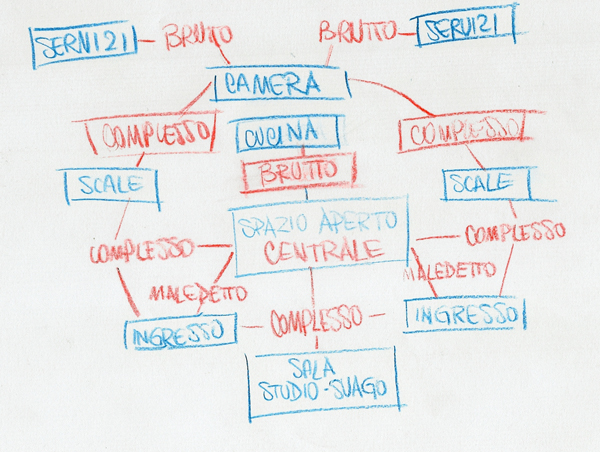 SERVIZI
BRUTTO
BRUTTO
SERVIZI
CAMERA
COMPLESSO
CUCINA
COMPLESSO
SCALE
BRUTTO
SCALE
SPAZIO APERTO
CENTRALE
COMPLESSO
COMPLESSO
MALEDETTO
MALEDETTO
INGRESSO
COMPLESSO
INGRESSO
SALA
STUDIO-SVAGO